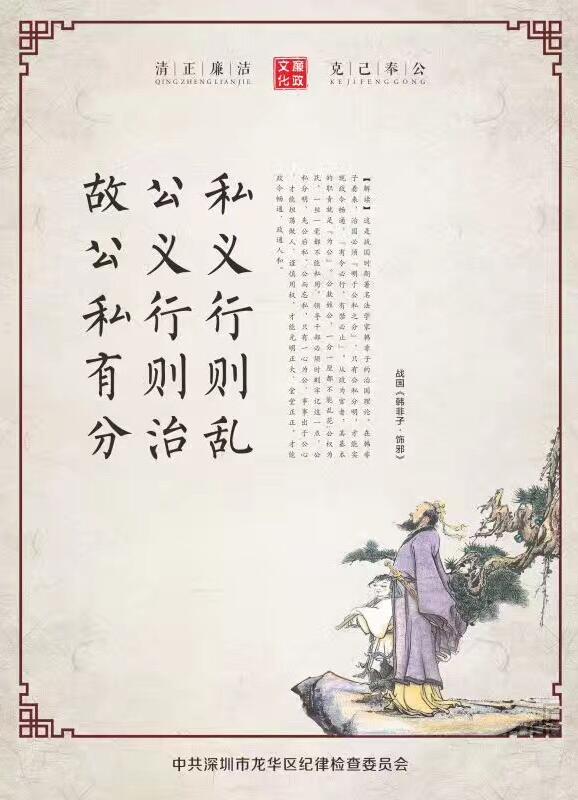 清|正|廉|洁
QINGZHENGLIANJIE
廉政
文化
克|己|奉|公
KEJIFENGGONG
战国《韩非子·饰邪》
【解读】这是战国时期著名法学家韩非子的治国理论。在韩非
子看来，治国必须“明于公私之分”，只有公私分明，才能实
现政令畅通，“有令必行，有禁必止”。从政为官者，其基本
的职责就是“为公”。公款姓公，一分一厘都不能乱花；公权为
民，一丝一毫都不能私用。领导干部必须时刻牢记这一点，公
私分明、先公后私、公而忘私，只有一心为公、事事出于公心
，才能坦荡做人、谨慎用权，才能光明正大、堂堂正正，才能
政令畅通，政通人和。
私义行则乱
公义行则治
故公私有分
中共深圳市龙华区纪律检查委员会